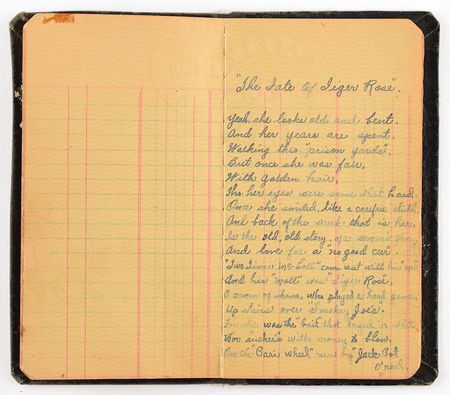 "The Fate Of Tiger Rose".
Yeah, she looks old and bent.
And her years are spent.
Walking this "prison yards".
But once she was fair,
With golden hair,
Tho her eyes were some what hard.
Once she smiled, like a carefree child,
And back of the wreck that is her,
Is the old, old story, of a woman's glory
And love for a "no good cur".
"Two Timer Mc Coll" came west with his
And his "moll" was "Tiger Rose",
A woman of shame, who played a hard game,
Up stairs over "Smokey Joe's".
For she was the "bait that
For "suckers" with money to blow,
On the "Paris Wheel" run by "Jack Pot
O'neal.